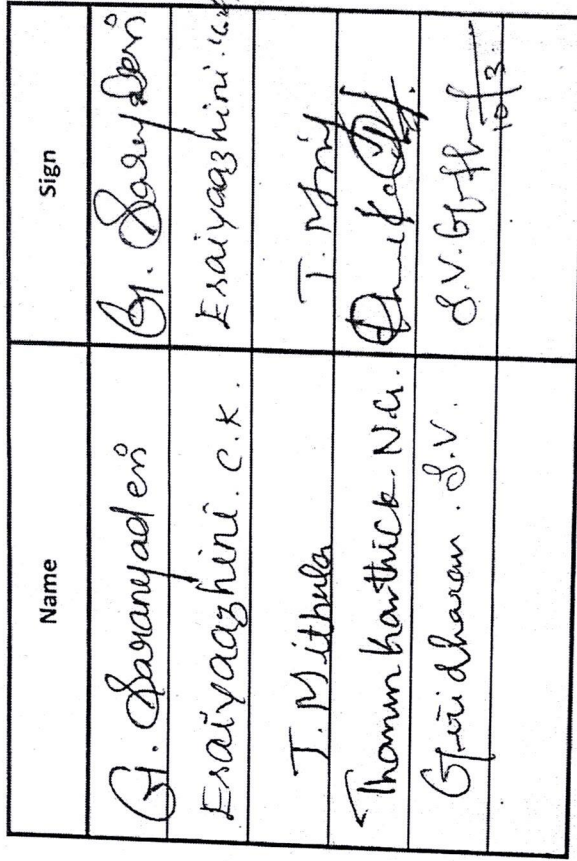 Name Sign
G. Saranyadevi G. Saranydevi
Esaiyaazhini. C.K. Esaiyaazhini. C.K
T. Mithula T. Mi
Thamim Karthick. N.G.
Giridharan. S.V. S.V. 10/3